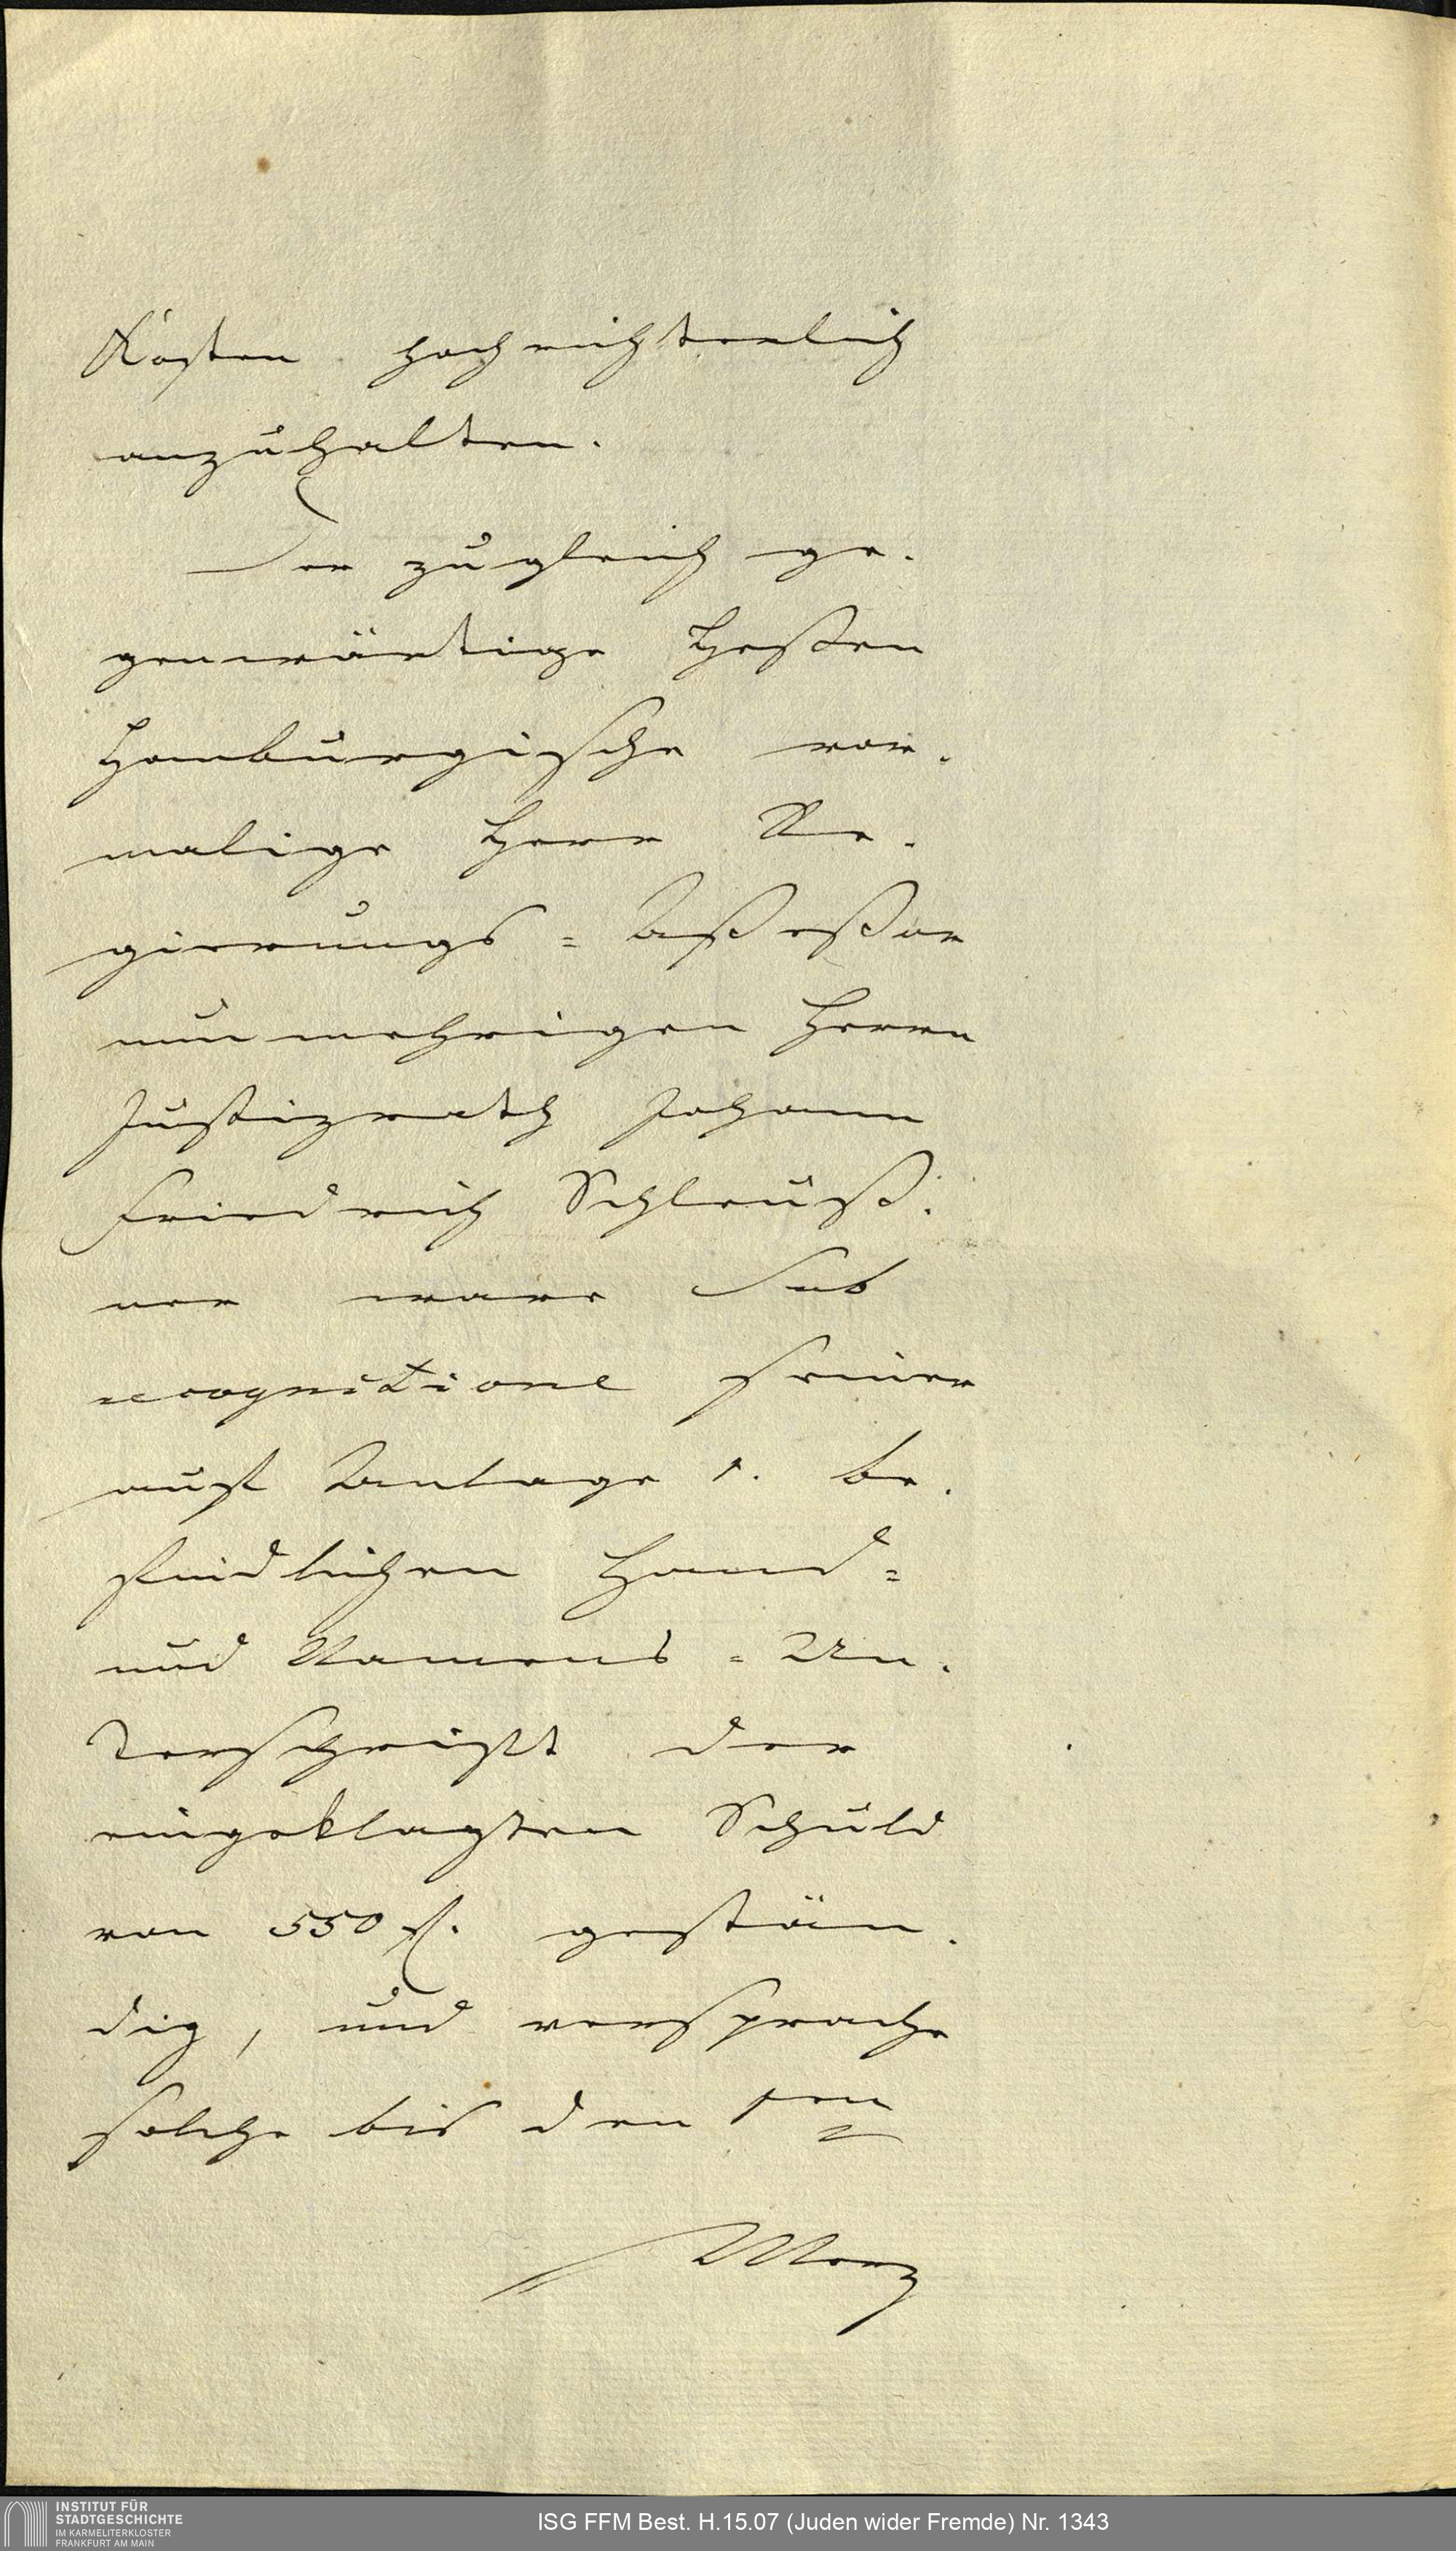 Kosten hochrichterlich
anzuhalten.
Der zugleich ge.
genwärtige Heßen
Homburgische vor.
malige Herr Re.
gierungs = Aßeßor
nunmehrigen Herrn
Justizrath Johann
Friedrich Schleuß.
ner ware sub
recognitione seiner
auf Anlage 1. be.
findlichen Hand =
und Namens = Un.
terschrift der
eingeklagten Schuld
von 550 f. gestän.
dig, und verspräche
solche bis den 1en
Merz
INSTITUT FÜR
STADTGESCHICHTE
IM KARMELITERKLOSTER
FRANKFURT AM MAIN
ISG FFM Best. H.15.07 (Juden wider Fremde) Nr. 1343